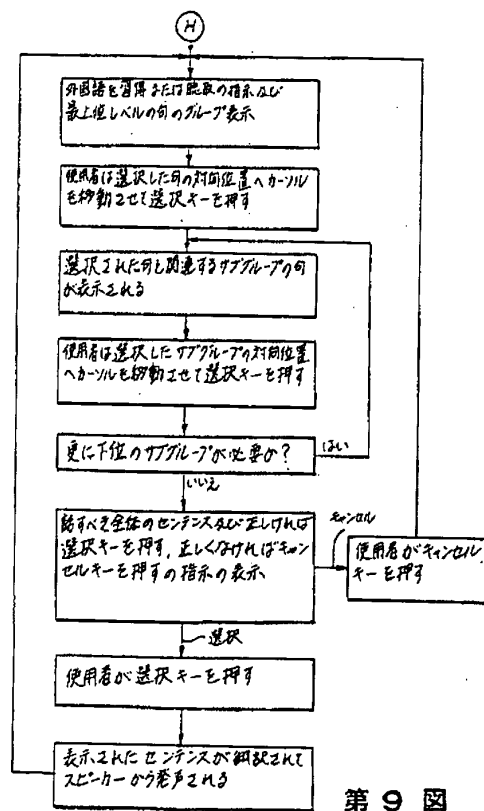 H
外国語を習得または聴取の指示及び
最上位レベルの句のグループ表示
使用者は選択した句の対向位置へカーソル
を移動させて選択キーを押す
選択された句と関連するサブグループの句
が表示される
使用者は選択したサブグループの対向位置
へカーソルを移動させて選択キーを押す
更に下位のサブグループが必要か?
はい
いいえ
話すべき全体のセンテンス及び正しければ
選択キーを押す,正しくなければキャン
セルキーを押すの指示の表示
キャンセル
使用者がキャンセル
キーを押す
選択
使用者が選択キーを押す
表示されたセンテンスが翻訳されて
スピーカーから発声される
第9図